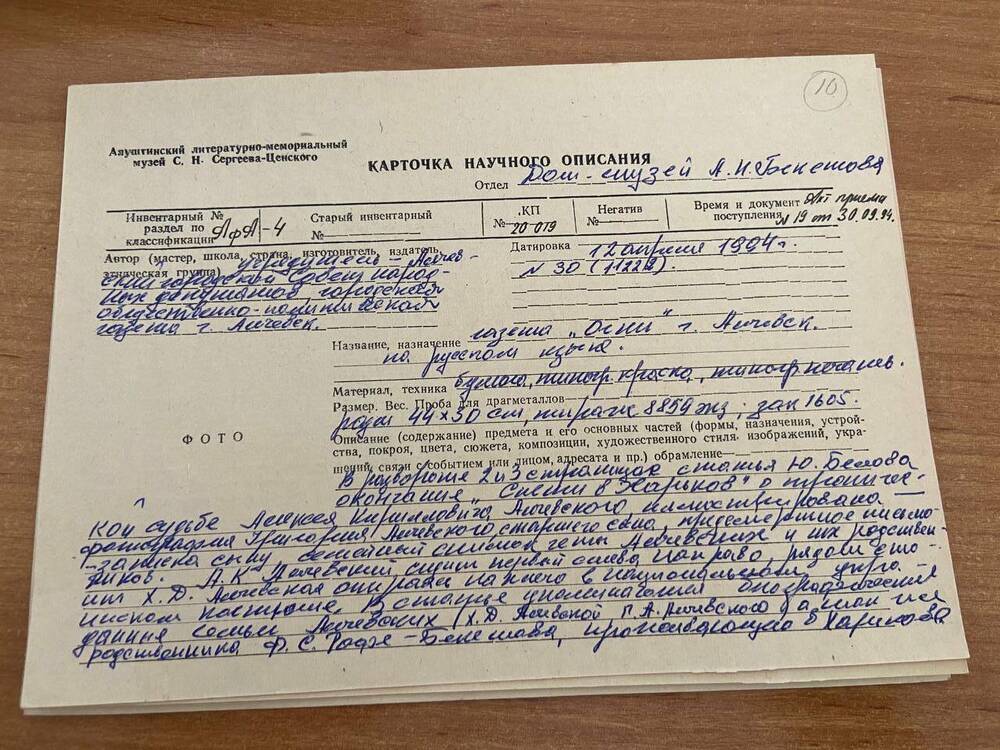 10
Алуштинский литературно-мемориальный
музей С. Н. Сергеева-Ценского
КАРТОЧКА НАУЧНОГО ОПИСАНИЯ
Отдел Дом-музей А.Н. Бекетова
Инвентарный №
раздел по
классификации АфА-4
Старый инвентарный
№
КП
№ 20 019
Негатив
№
Время и документ Акт приема
поступления № 19 от 30.09.94.
Автор (мастер, школа, страна, изготовитель, издатель,
этническая группа) учредитель – Алчев-
ский городской Совет народ-
ных депутатов, городская
общественно-политическая
газета г. Алчевск.
Датировка 12 апреля 1994 г.
№ 30 (11222).
Название, назначение газета „Огни" г. Алчевск.
на русском языке.
Материал, техника бумага, типогр. краска, типогр. печать.
Размер. Вес. Проба для драгметаллов
разм 44×30 см, тираж 8859 экз; зак 1605.
ФОТО
Описание (содержание) предмета и его основных частей (формы, назначения, устрой-
ства, покроя, цвета, сюжета, композиции, художественного стиля, изображений, укра-
шений, связи с событием или лицом, адресата и пр.) обрамление
В развороте 2 и 3 страницах статья Ю. Белова
окончание „ в Харьков" о трагичес-
кой судьбе Алексея Кирилловича Алчевского, иллюстрирована –
фотография Григория Алчевского, старшего сына, предсмертное письмо
-записка сыну, семейный снимок четы Алчевских и их родствен-
ников. А.К Алчевский сидит первой слева направо, рядом сто-
ит Х.Д. Алчевская опираясь на него в национальном укра-
инском костюме. В статье упоминаются биографические
данные семьи Алчевских (Х.Д. Алчевской Г.А. Алчевского) а также
родственника Ф.С. Рофе-Бекетова, проживающего в Харькове